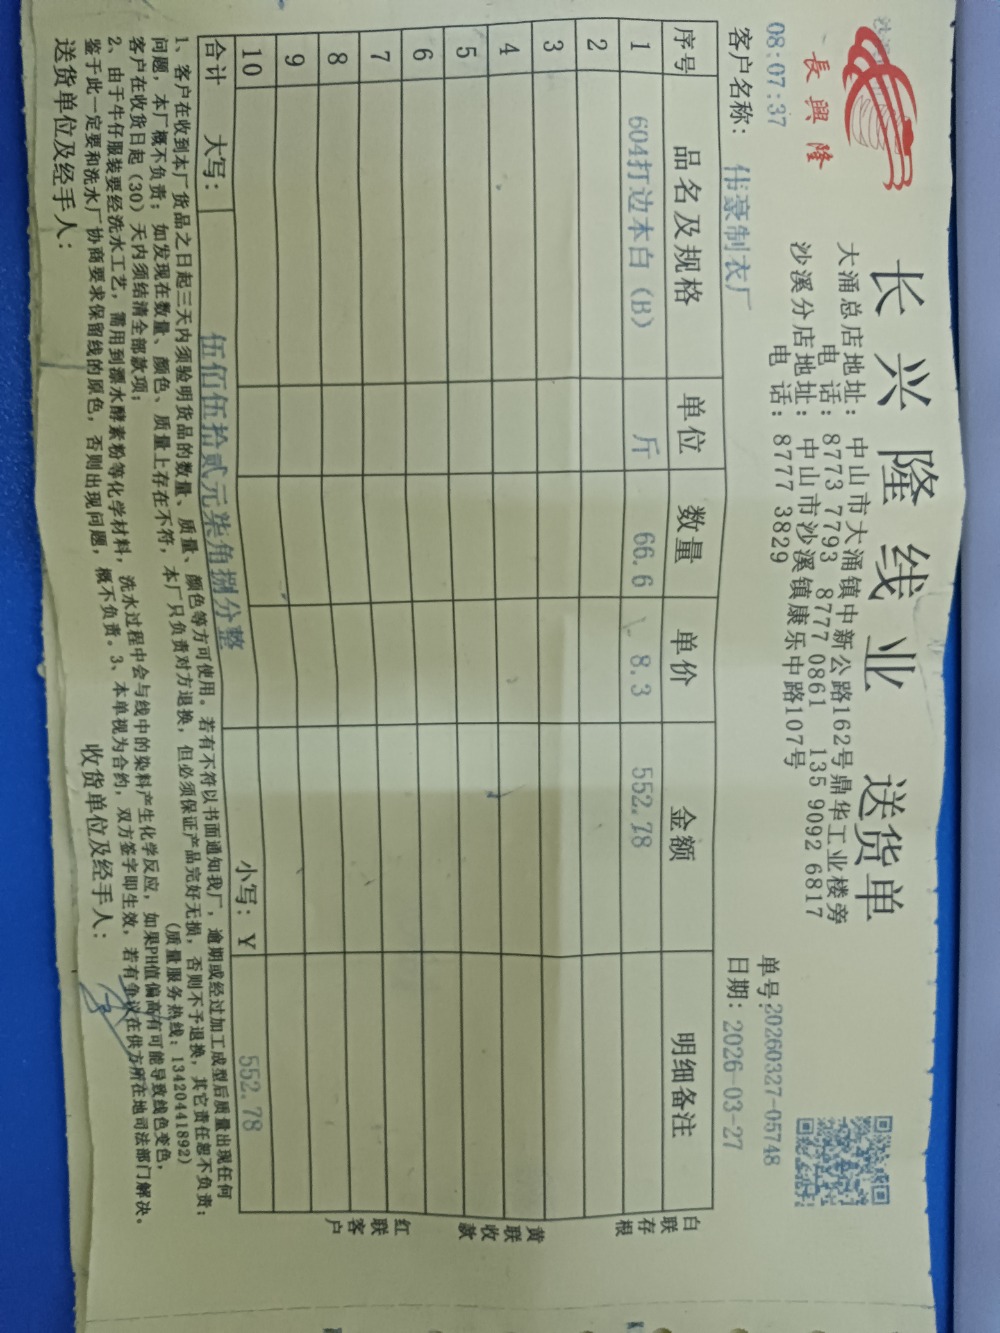 長興隆
长兴隆线业 送货单
大涌总店地址：中山市大涌镇中新公路162号鼎华工业楼旁
电 话：8773 7793 8777 0861 135 9092 6817
沙溪分店地址：中山市沙溪镇康乐中路107号
电 话：8777 3829
单号:20260327-05748
08:07:37
客户名称：伟豪制衣厂
日期：2026-03-27
序号 品名及规格 单位 数量 单价 金额 明细备注
1 604打边本白（B） 斤 66.6 8.3 552.78
2
3
4
5
6
7
8
9
10
合计 大写：伍佰伍拾贰元柒角捌分整 小写：¥ 552.78
白联存根
黄联收款
红联客户
1、客户在收到本厂货品之日起三天内须验明货品的数量、质量、颜色等方可使用。若有不符以书面通知我厂，逾期或经过加工成型后质量出现任何
问题，本厂概不负责；如发现在数量、颜色、质量上存在不符，本厂只负责对方退换，但必须保证产品完好无损，否则不予退换，其它责任恕不负责；
客户在收货日起（30）天内须结清全部款项； （质量服务热线：13420441892）
2、由于牛仔服装要经洗水工艺，需用到漂水酵素粉等化学材料，洗水过程中会与线中的染料产生化学反应，如果PH值偏高有可能导致线色变色，
鉴于此一定要和洗水厂协商要求保留线的原色，否则出现问题，概不负责。3、本单视为合约，双方签字即生效，若有争议在供方所在地司法部门解决。
送货单位及经手人： 收货单位及经手人：